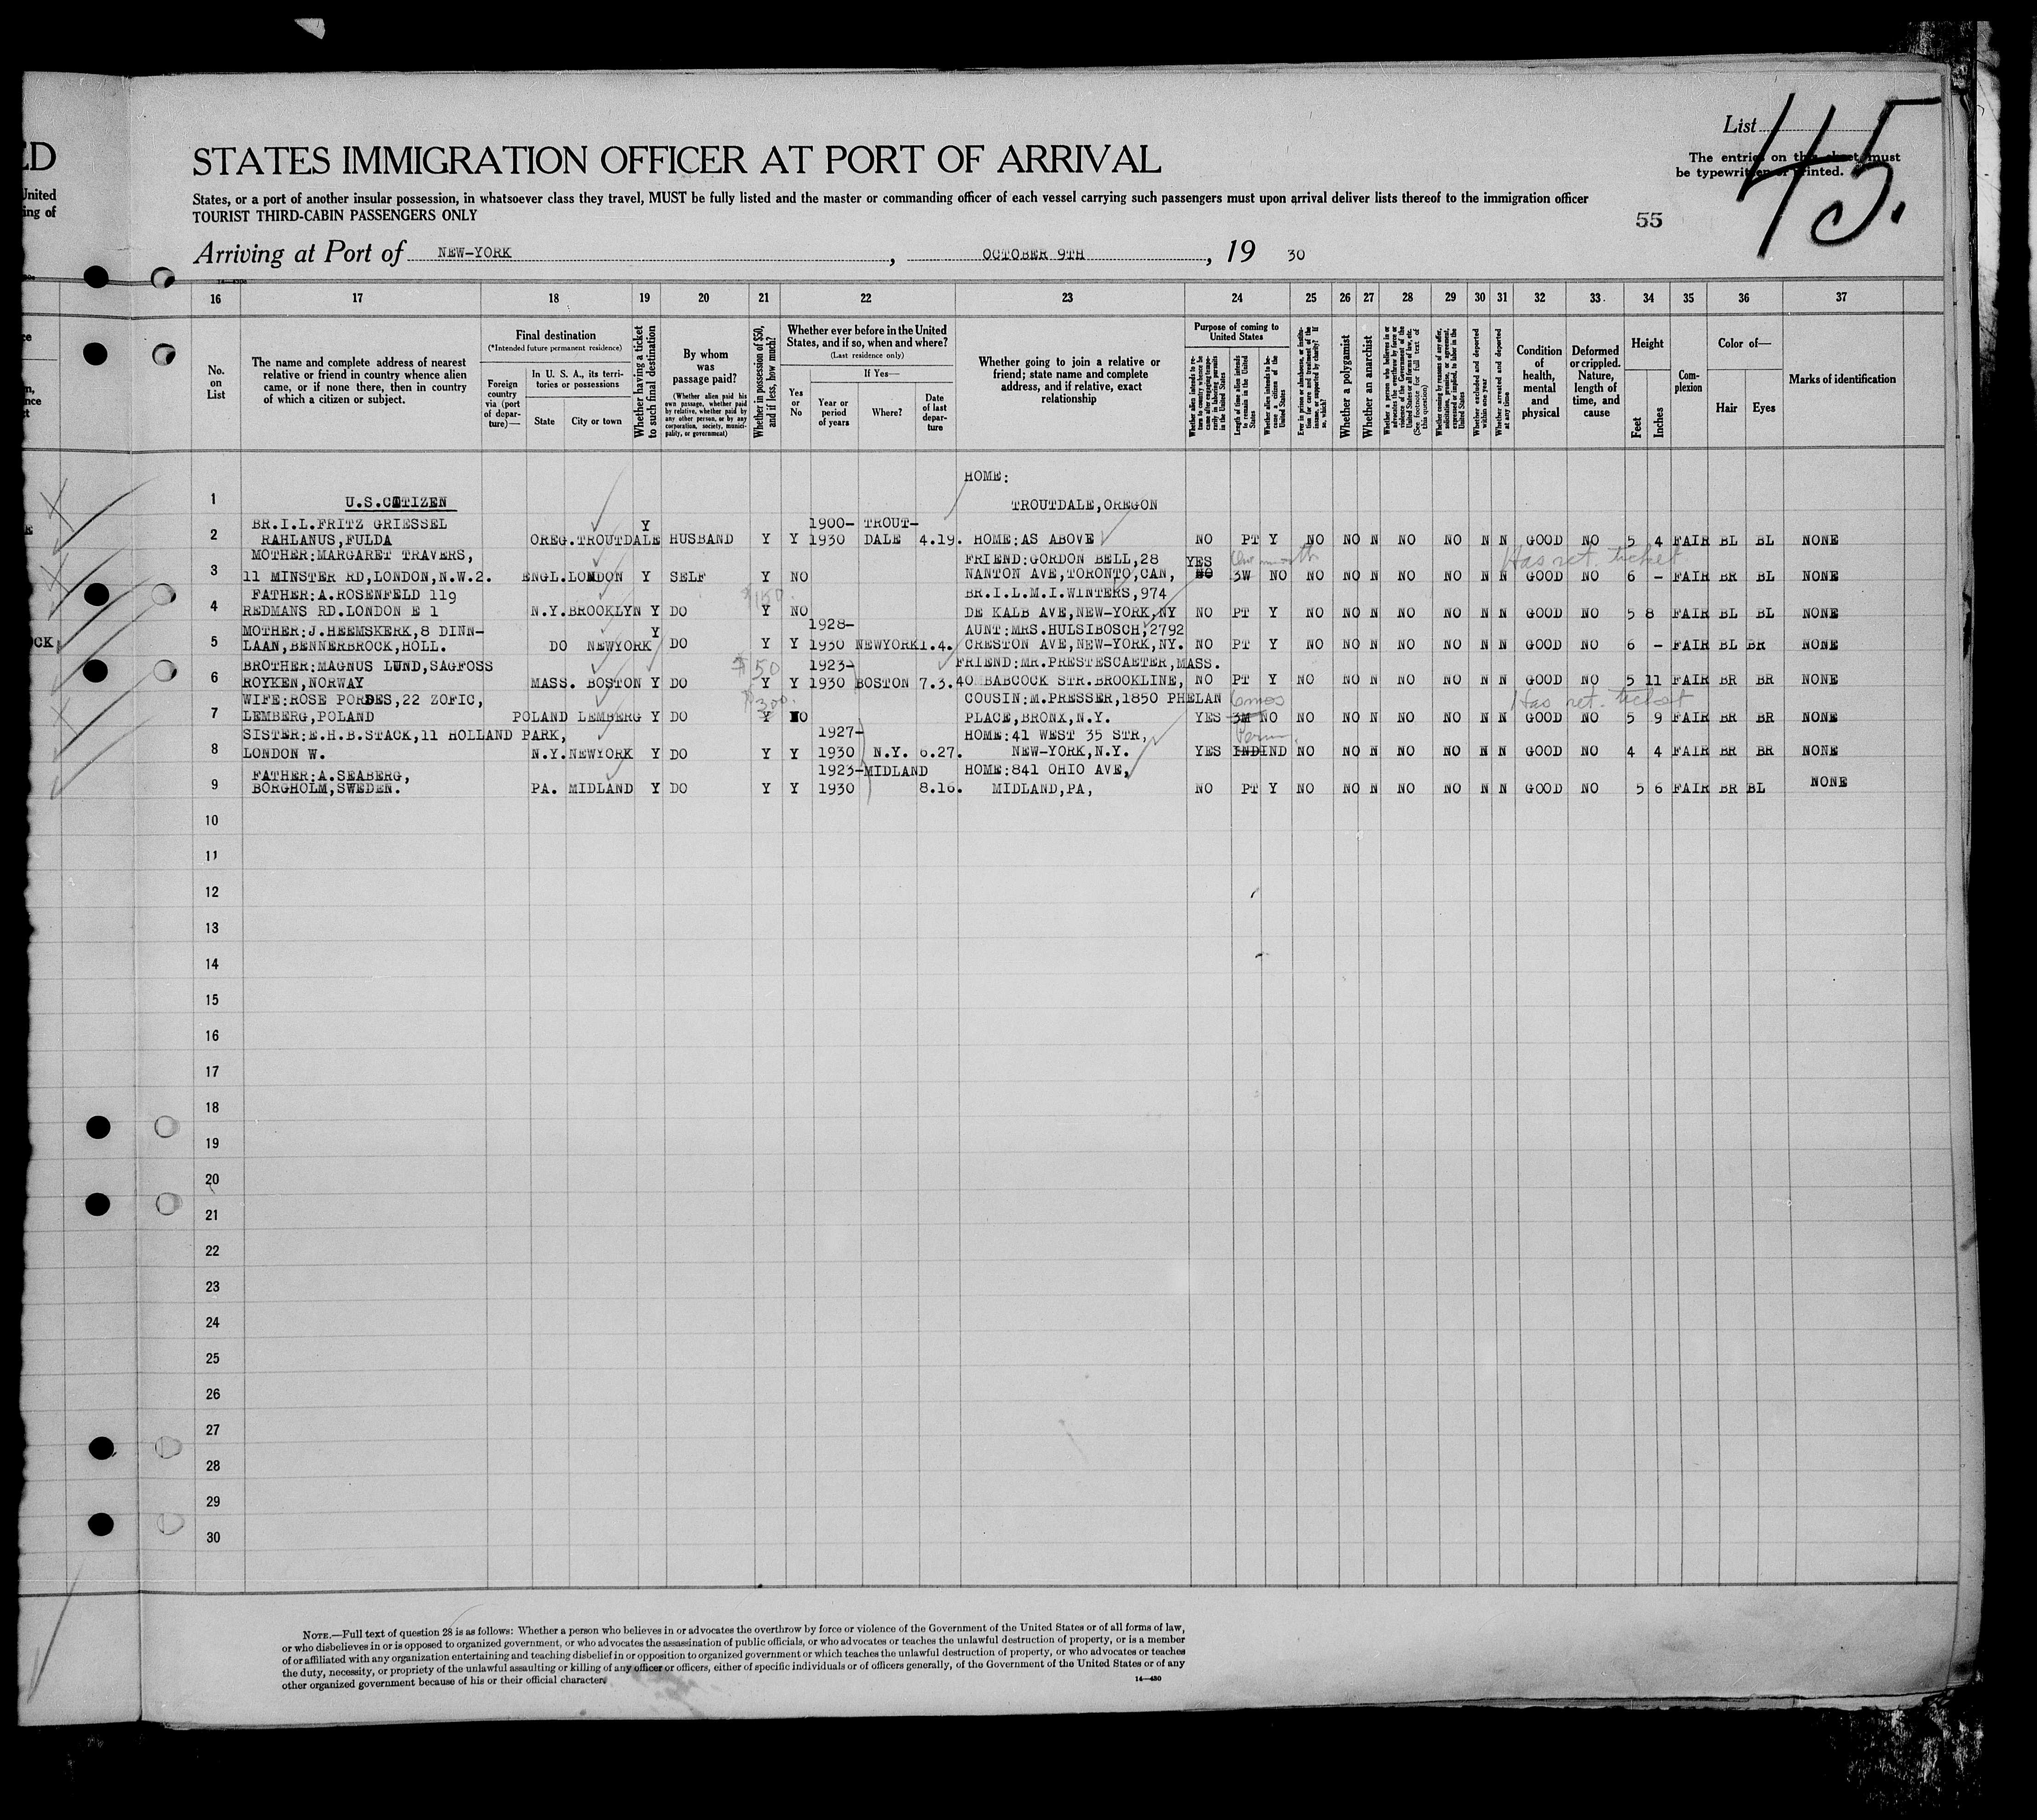 ED
United
ing of
List
45.
The entries on this sheet must
be typewritten or printed.
STATES IMMIGRATION OFFICER AT PORT OF ARRIVAL
States, or a port of another insular possession, in whatsoever class they travel, MUST be fully listed and the master or commanding officer of each vessel carrying such passengers must upon arrival deliver lists thereof to the immigration officer
TOURIST THIRD-CABIN PASSENGERS ONLY
55
Arriving at Port of NEW-YORK, OCTOBER 9TH, 19 30
16 17 18 19 20 21 22 23 24 25 26 27 28 29 30 31 32 33 34 35 36 37
No. on List
The name and complete address of nearest
relative or friend in country whence alien
came, or if none there, then in country
of which a citizen or subject.
Final destination
(*Intended future permanent residence)
Foreign country via (port of departure)—
In U. S. A., its territories or possessions
State
City or town
Whether having a ticket to such final destination
By whom was passage paid?
(Whether alien paid his own passage, whether paid by relative, whether paid by any other person, or by any corporation, society, municipality, or government)
Whether in possession of $50, and if less, how much?
Whether ever before in the United States, and if so, when and where?
(Last residence only)
Yes or No
If Yes—
Year or period of years
Where?
Date of last departure
Whether going to join a relative or
friend; state name and complete
address, and if relative, exact
relationship
Purpose of coming to United States
Whether alien intends to return to country whence he came after engaging temporarily in laboring pursuits in the United States
Length of time alien intends to remain in the United States
Whether alien intends to become a citizen of the United States
Ever in prison or almshouse, or institution for care and treatment of the insane, or supported by charity? If so, which?
Whether a polygamist
Whether an anarchist
Whether a person who believes in or advocates the overthrow by force or violence of the Government of the United States or all forms of law, etc. (See footnote for full text of this question)
Whether coming by reasons of any offer, solicitation, promise, or agreement, expressed or implied, to labor in the United States
Whether excluded and deported within one year
Whether arrested and deported at any time
Condition of health, mental and physical
Deformed or crippled. Nature, length of time, and cause
Height
Feet
Inches
Complexion
Color of—
Hair
Eyes
Marks of identification
HOME:
1 U.S.CITIZEN TROUTDALE,OREGON
BR.I.L.FRITZ GRIESSEL Y 1900- TROUT-
2 RAHLANUS,FULDA OREG.TROUTDALE HUSBAND Y Y 1930 DALE 4.19. HOME:AS ABOVE NO PT Y NO NO N NO NO N N GOOD NO 5 4 FAIR BL BL NONE
MOTHER:MARGARET TRAVERS, FRIEND:GORDON BELL,28 YES One month Has ret. ticket
3 11 MINSTER RD,LONDON,N.W.2. ENGL.LONDON Y SELF Y NO NANTON AVE,TORONTO,CAN, NO 3W NO NO NO N NO NO N N GOOD NO 6 - FAIR BR BL NONE
FATHER:A.ROSENFELD 119 $150. BR.I.L.M.I.WINTERS,974
4 REDMANS RD.LONDON E 1 N.Y.BROOKLYN Y DO Y NO DE KALB AVE,NEW-YORK,NY NO PT Y NO NO N NO NO N N GOOD NO 5 8 FAIR BL BL NONE
MOTHER:J.HEEMSKERK,8 DINN- Y 1928- AUNT:MRS.HULSIBOSCH,2792
5 LAAN,BENNERBROCK,HOLL. DO NEWYORK DO Y Y 1930 NEWYORK1.4. CRESTON AVE,NEW-YORK,NY. NO PT Y NO NO N NO NO N N GOOD NO 6 - FAIR BL BR NONE
OCK
BROTHER:MAGNUS LUND,SAGFOSS $50 1923- FRIEND:MR.PRESTESCAETER,MASS.
6 ROYKEN,NORWAY MASS. BOSTON Y DO Y Y 1930 BOSTON 7.3. 40 BABCOCK STR.BROOKLINE, NO PT Y NO NO N NO NO N N GOOD NO 5 11 FAIR BR BR NONE
WIFE:ROSE PORDES,22 ZOFIC, $300. COUSIN:M.PRESSER,1850 PHELAN 6mos Has ret. ticket
7 LEMBERG,POLAND POLAND LEMBERG Y DO Y NO PLACE,BRONX,N.Y. YES 3M NO NO NO N NO NO N N GOOD NO 5 9 FAIR BR BR NONE
SISTER:E.H.B.STACK,11 HOLLAND PARK, 1927- HOME:41 WEST 35 STR, Perm.
8 LONDON W. N.Y.NEWYORK Y DO Y Y 1930 N.Y. 6.27. NEW-YORK,N.Y. YES INDIND NO NO N NO NO N N GOOD NO 4 4 FAIR BR BR NONE
FATHER:A.SEABERG, 1923-MIDLAND HOME:841 OHIO AVE,
9 BORGHOLM,SWEDEN. PA. MIDLAND Y DO Y Y 1930 8.16. MIDLAND,PA, NO PT Y NO NO N NO NO N N GOOD NO 5 6 FAIR BR BL NONE
10
11
12
13
14
15
16
17
18
19
20
21
22
23
24
25
26
27
28
29
30
NOTE.—Full text of question 28 is as follows: Whether a person who believes in or advocates the overthrow by force or violence of the Government of the United States or of all forms of law,
or who disbelieves in or is opposed to organized government, or who advocates the assassination of public officials, or who advocates or teaches the unlawful destruction of property, or is a member
of or affiliated with any organization entertaining and teaching disbelief in or opposition to organized government or which teaches the unlawful destruction of property, or who advocates or teaches
the duty, necessity, or propriety of the unlawful assaulting or killing of any officer or officers, either of specific individuals or of officers generally, of the Government of the United States or of any
other organized government because of his or their official character.
14—480